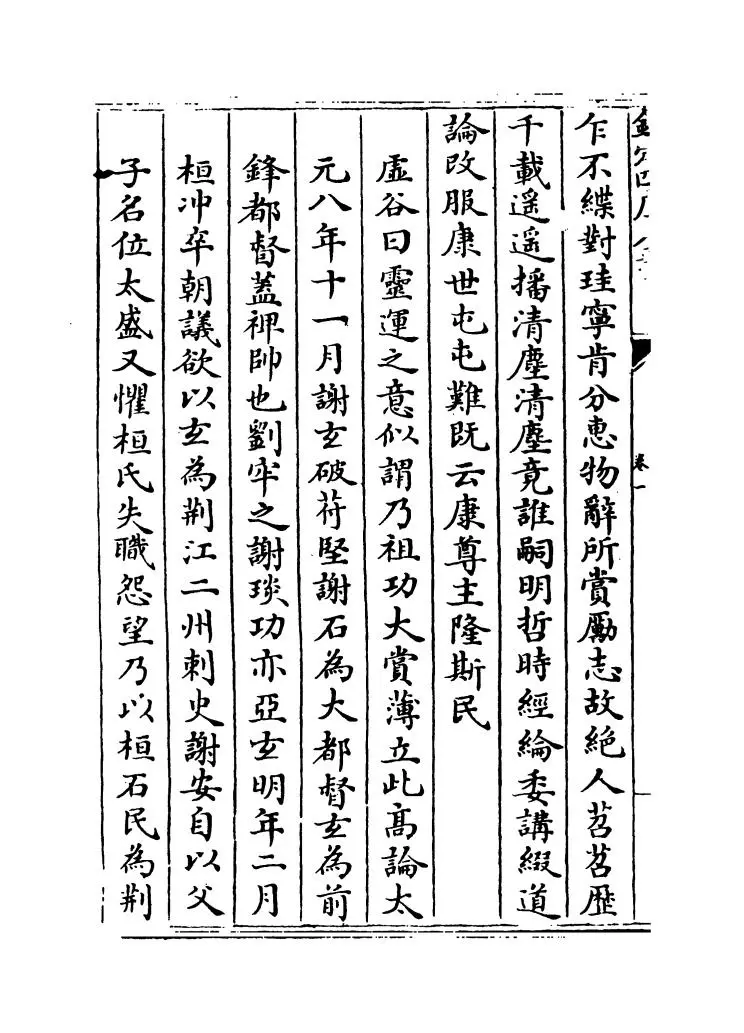 乍不緤對珪寧肯分惠物辭所賞勵志故絶人苕苕歴
千載遥遥播清塵清塵竟誰嗣明哲時經綸委講綴道
論改服康世屯屯難既云康尊主隆斯民
虛谷曰靈運之意似謂乃祖功大賞薄立此髙論太
元八年十一月謝𤣥破苻堅謝石為大都督𤣥為前
鋒都督蓋裨帥也劉牢之謝琰功亦亞𤣥明年二月
桓冲卒朝議欲以𤣥為荆江二州刺史謝安自以父
子名位太盛又懼桓氏失職怨望乃以桓石民為荆
卷一